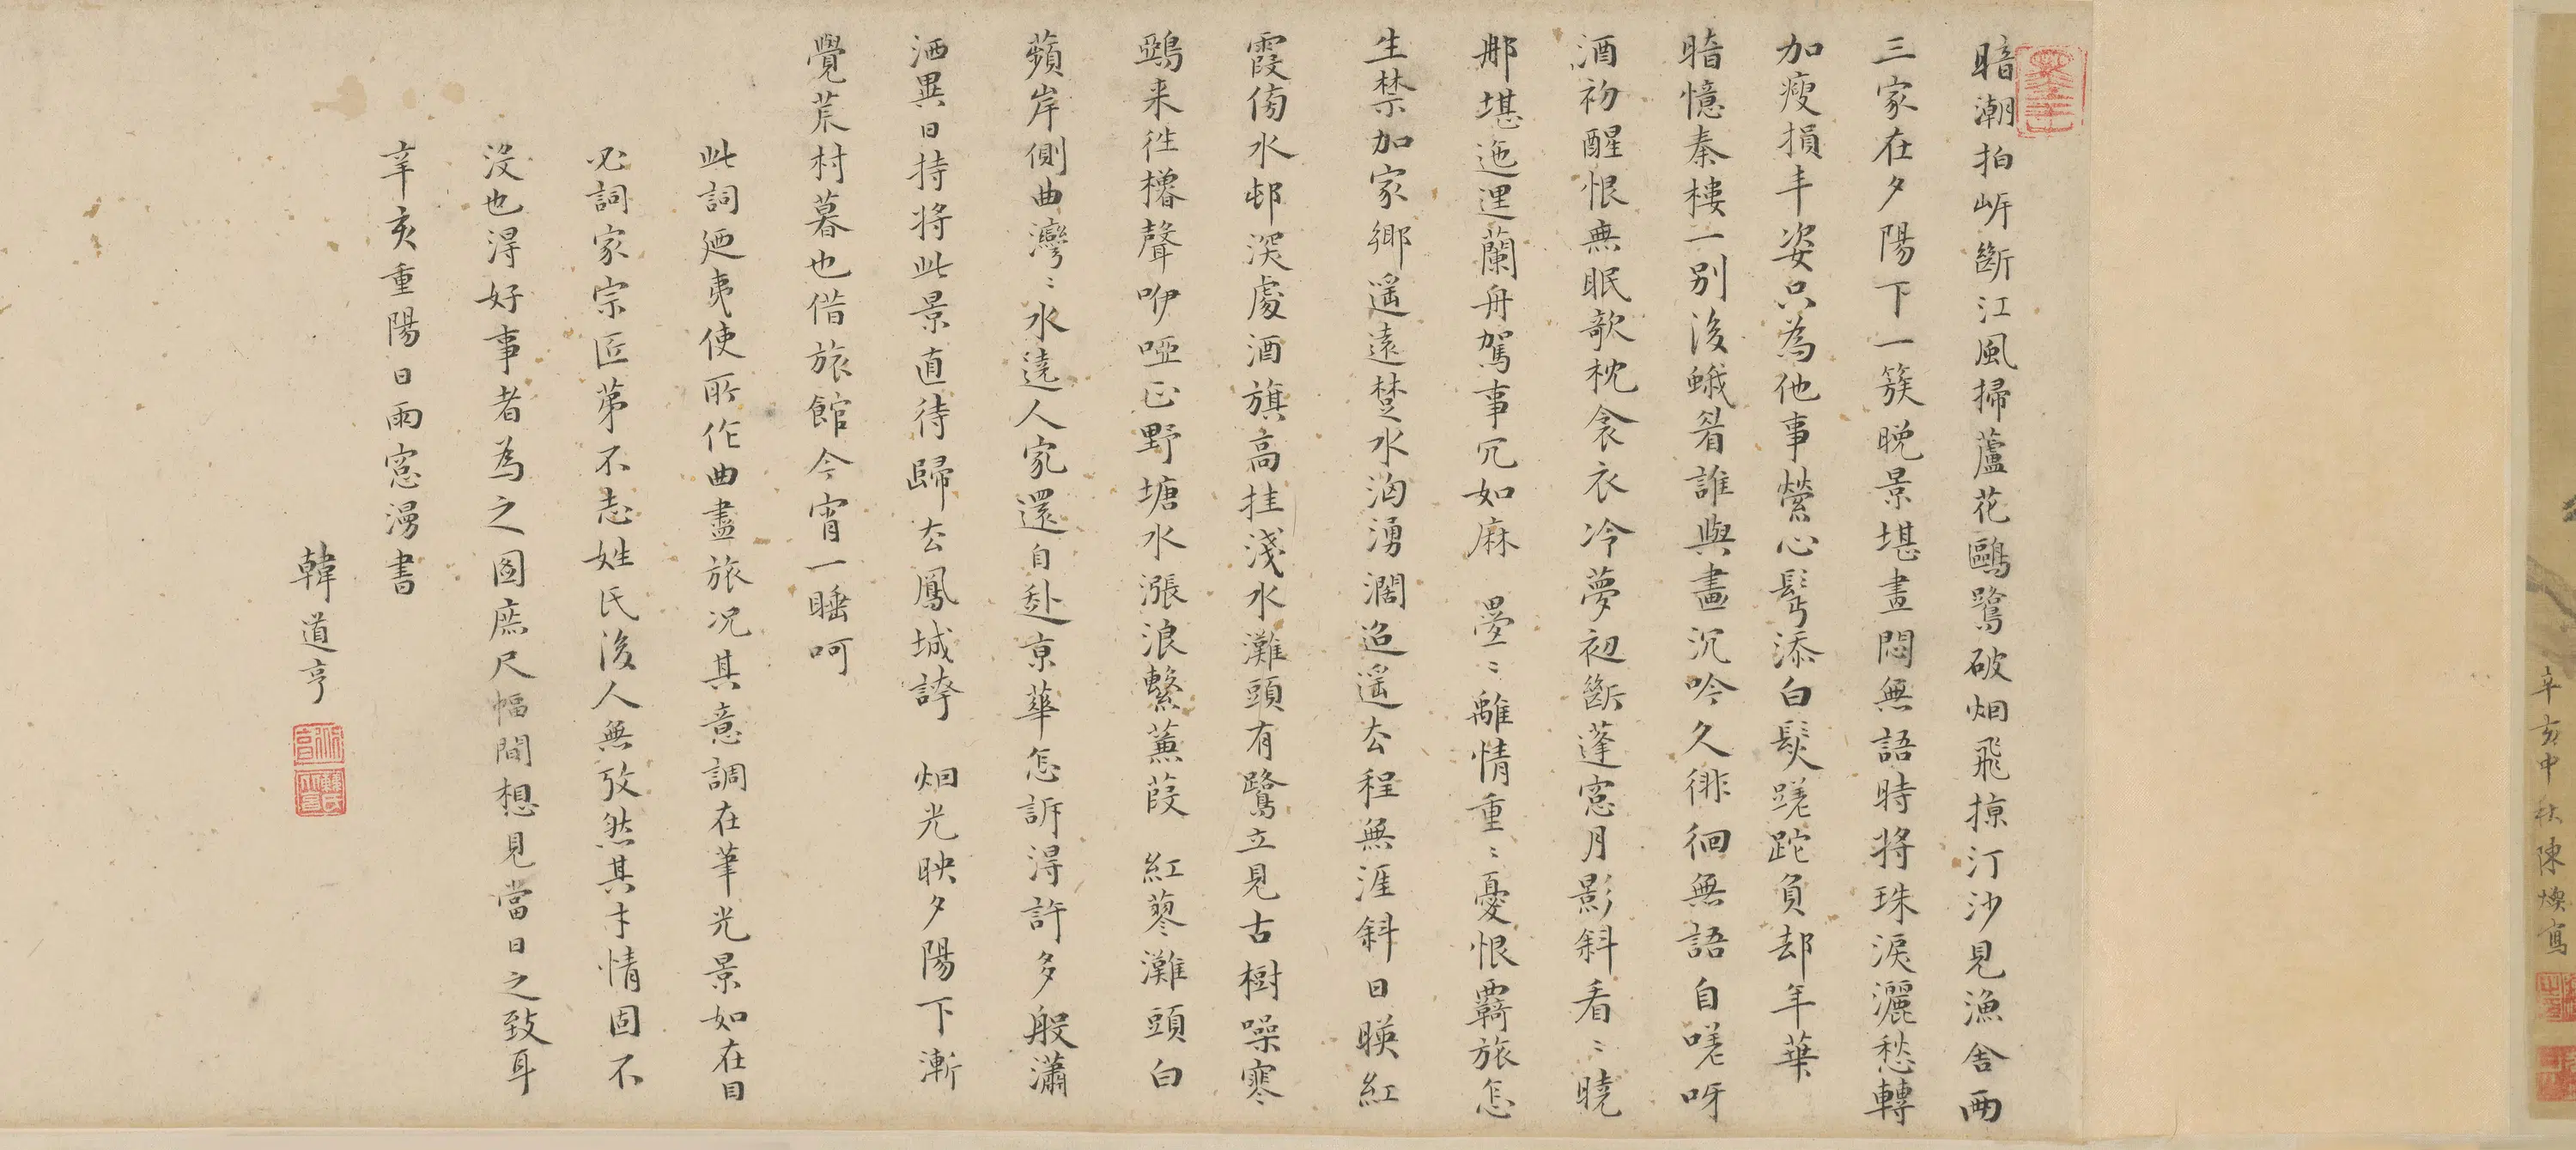 暗潮拍岸斷江風掃蘆花鷗鷺破烟飛掠汀沙見漁舍兩
三家在夕陽下一簇晚景堪畫悶無語時將珠淚灑愁轉
加瘦損丰姿只為他事縈心髩添白髮蹉跎負却年華
暗憶秦樓一别後蛾眉誰與畫沉吟久徘徊無語自嗟呀
酒初醒恨無眠欹枕衾衣冷夢初斷蓬窓月影斜看〻曉
那堪迤逕蘭舟駕事冗如麻 疉〻離情重〻憂恨羇旅怎
生禁加家鄉遥遠楚水洶湧濶迢遥去程無涯斜日暎紅
霞傍水邨深處酒旗高挂淺水灘頭有鷺立見古樹噪寒
鵶来往櫓聲咿啞正野塘水漲浪繫蒹葭 紅蓼灘頭白
蘋岸側曲灣〻水遶人家還自赴京華怎訴得許多般瀟
洒異日持將此景直待歸去鳳城誇 烟光映夕陽下漸
覺荒村暮也借旅館今宵一睡呵
此詞廼夷使所作曲盡旅况其意調在筆光景如在目
必詞家宗匠苐不志姓氏後人無攷然其才情固不
没也得好事者為之圖庶尺幅間想見當日之致耳
辛亥重陽日雨窓漫書
韓道亨
辛亥中秋陳煥寫